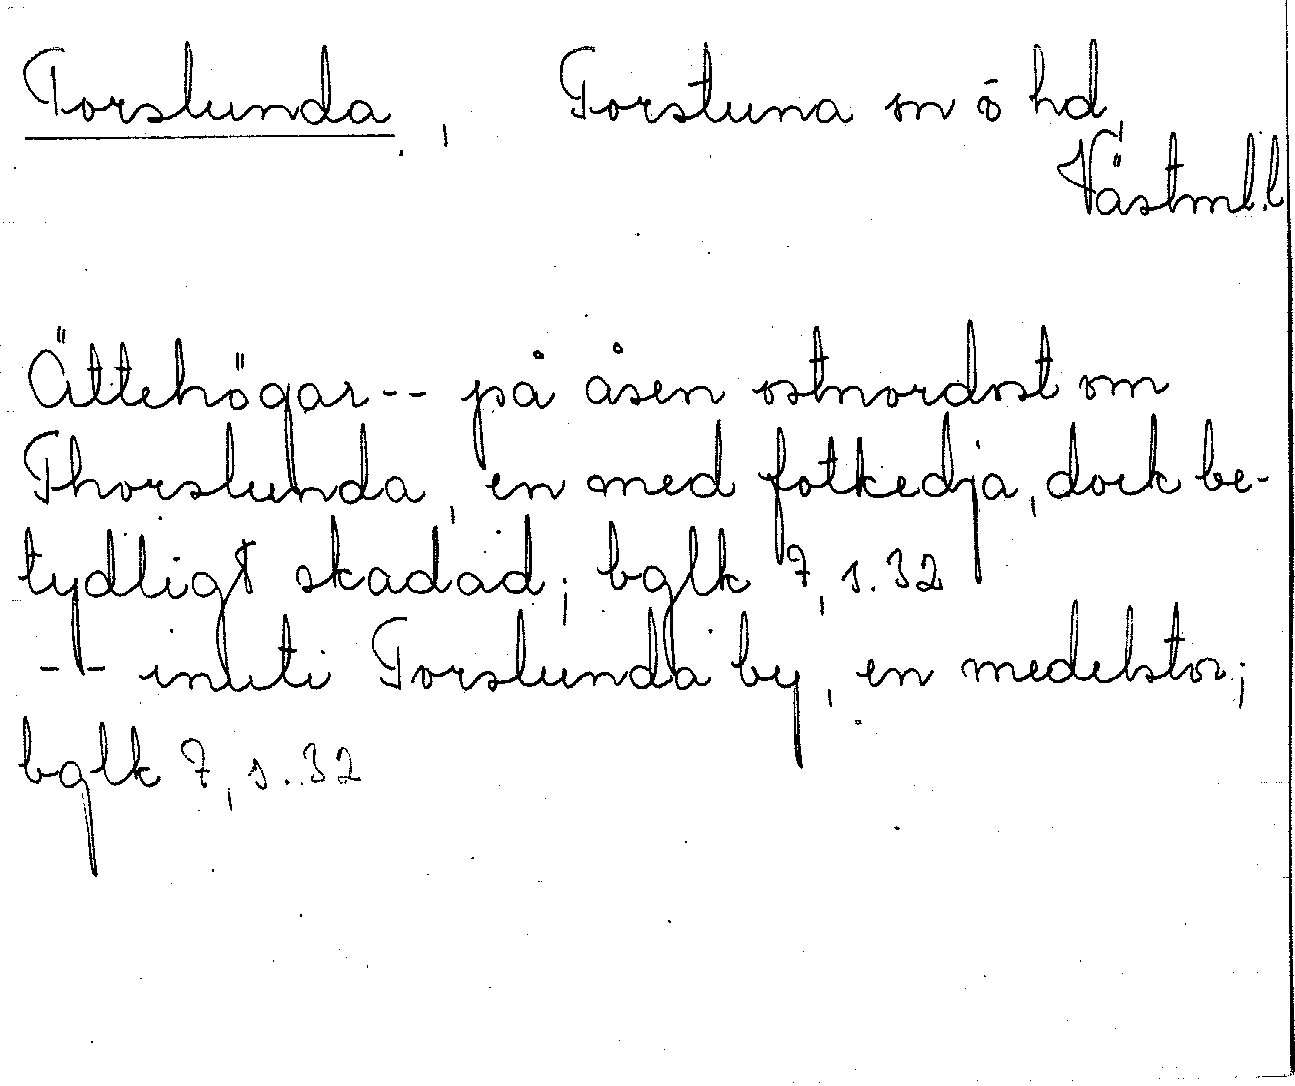 Torslunda, Torstuna sn o hd,
Västml.l
Ättehögar -- på åsen ostnordost om
Thorslunda, en med fotkedja, dock be-
tydligt skadad; bglk 7, s. 32
-- intill Torslunda by, en medelstor;
bglk 7, s. 32